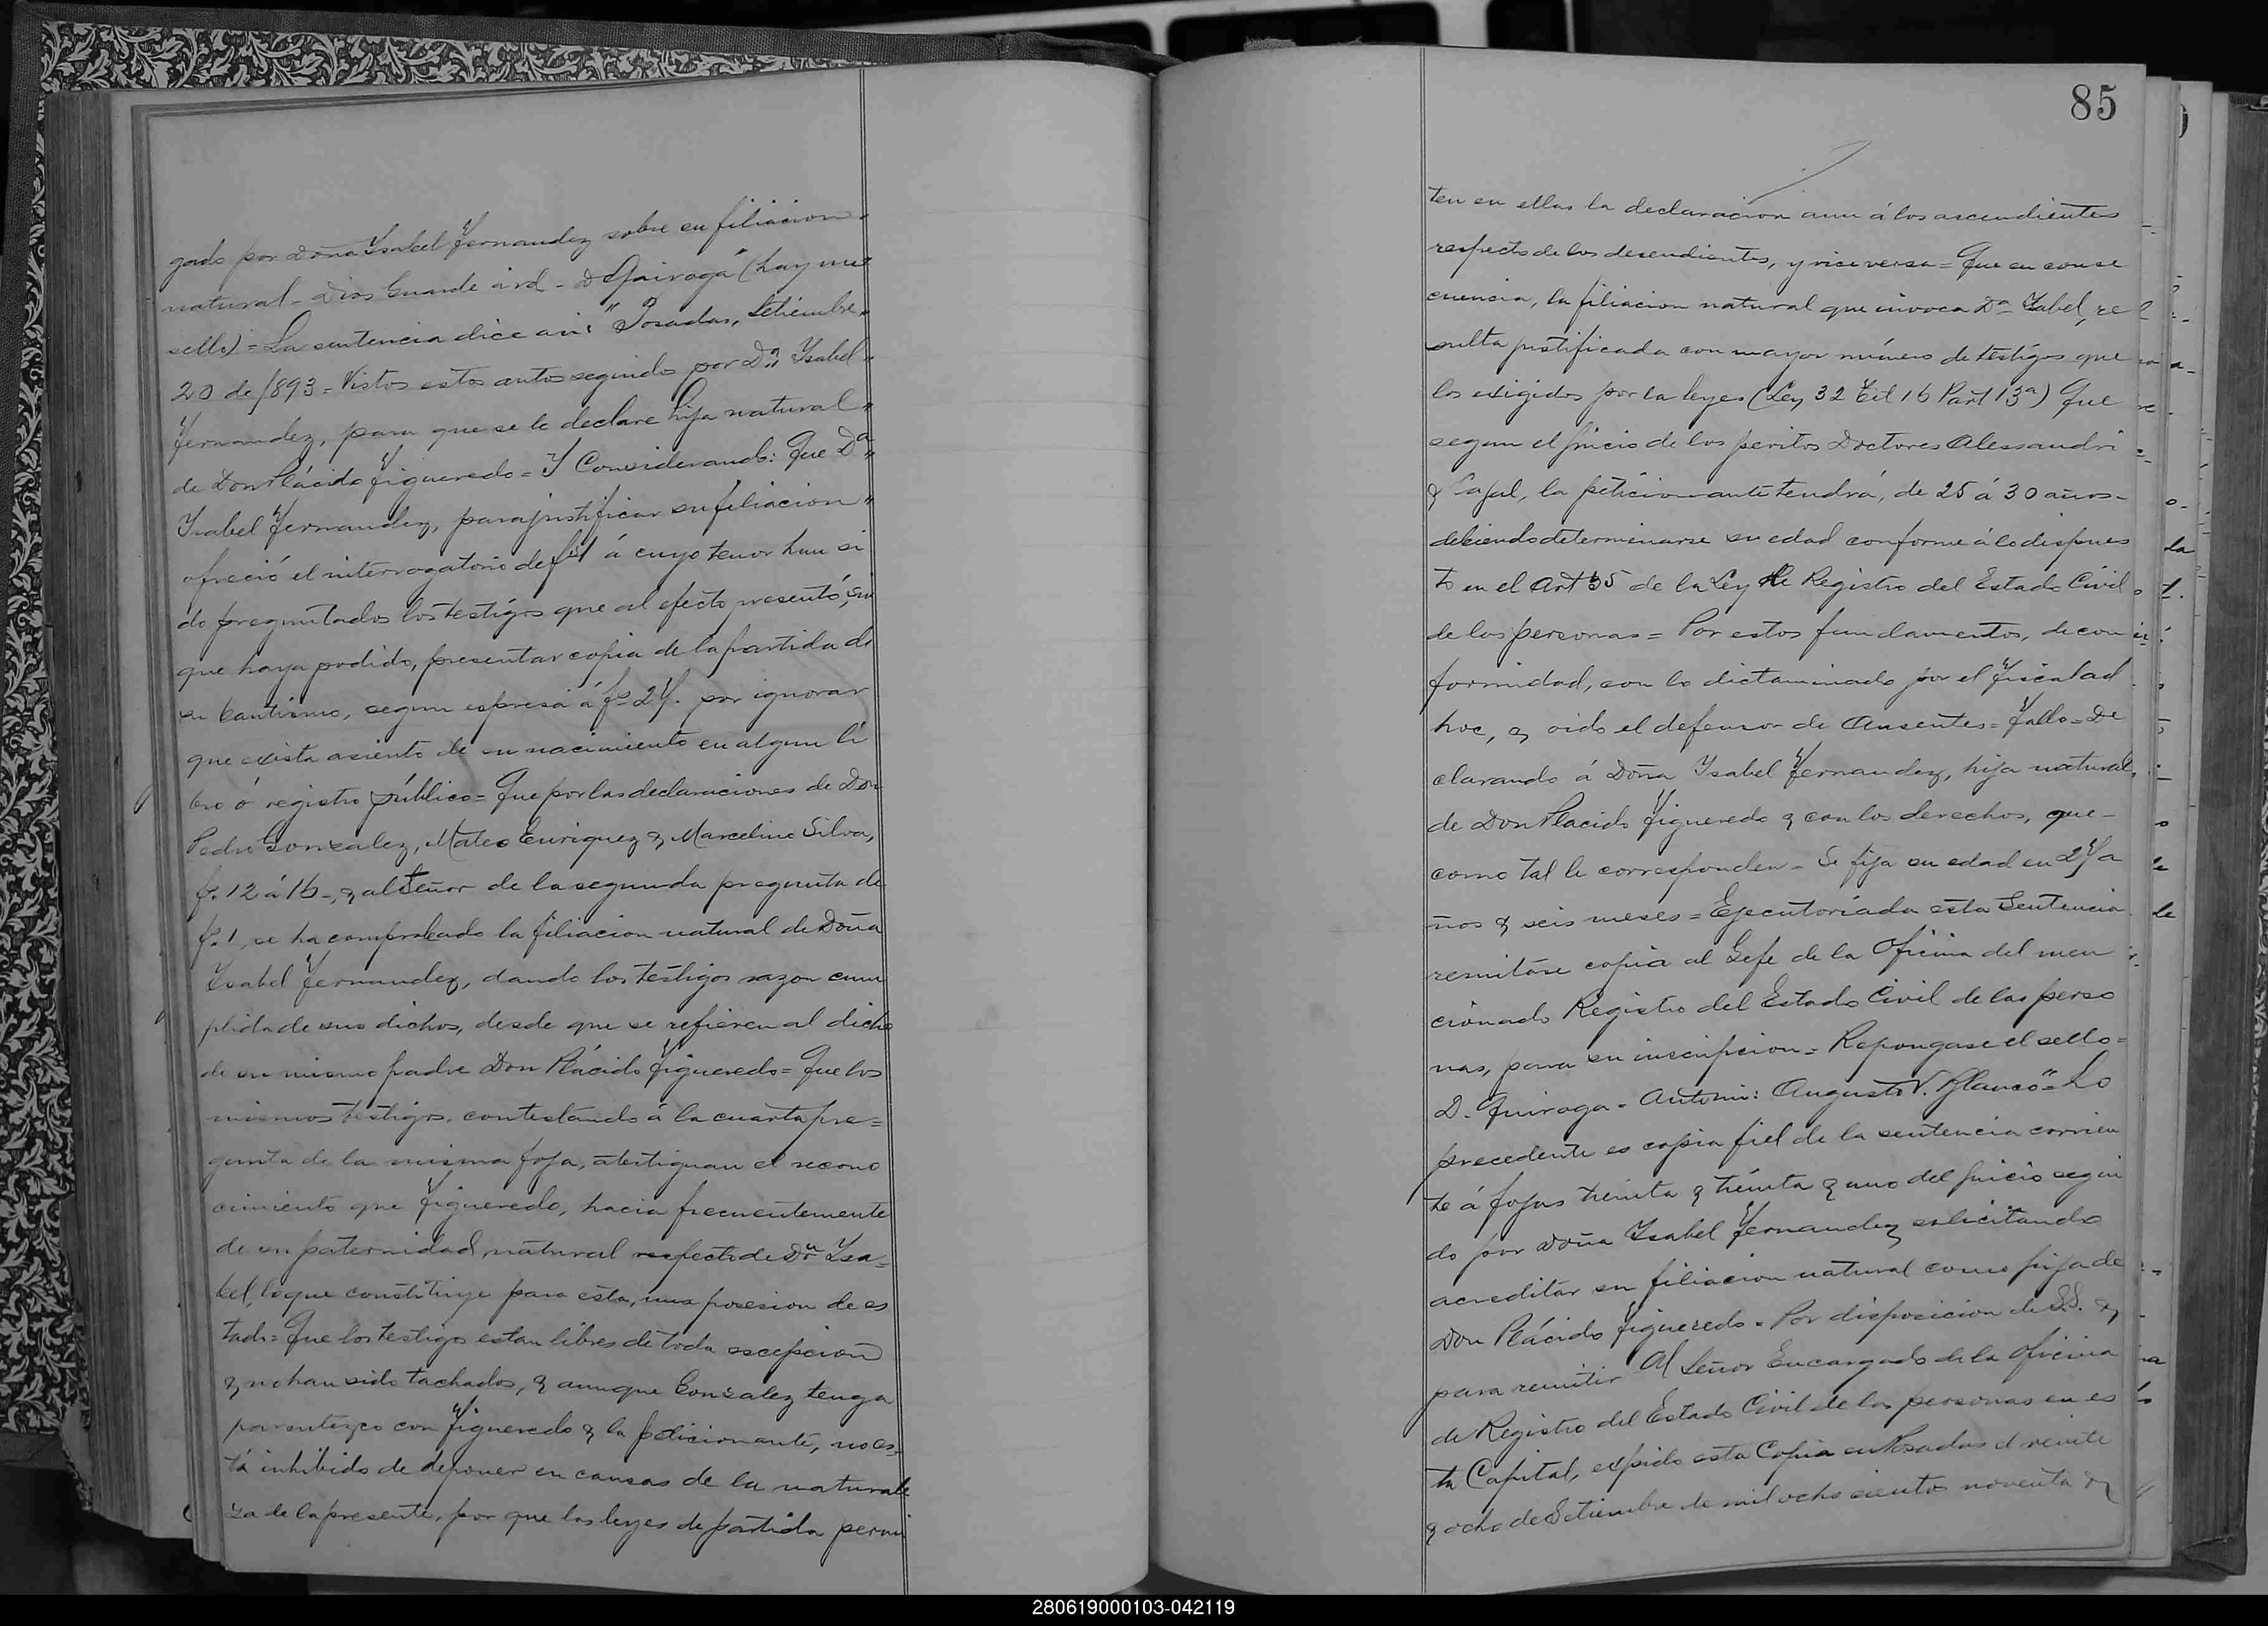 gado por Doña Ysabel Fernandez sobre su filiacion
natural - Dios Guarde á vd - D Quiroga" (hay un
sello) = La sentencia dice asi: "Posadas, Setiembre
20 de 1893 = Vistos estos autos seguidos por Dª Ysabel
Fernandez, para que se le declare hija natural
de Don Plácido Figueredo = Y Considerando: Que Dª
Ysabel Fernandez, para justificar su filiacion
ofreció el interrogatorio de fs 1 á cuyo tenor han si
do preguntados los testigos que al efecto presentó, sin
que haya podido, presentar copia de la partida de
su bautismo, segun espresa á fs 24. por ignorar
que exista asiento de su nacimiento en algun li
bro ó registro público = Que por las declaraciones de Don
Pedro Gonzalez, Mateo Enriquez & Marcelino Silva,
fs. 12 á 16 -, & al tenor de la segunda pregunta de
fs. 1, se ha comprobado la filiacion natural de Doña
Ysabel Fernandez, dando los testigos razon cum
plida de sus dichos, desde que se refieren al dicho
de su mismo padre Don Plácido Figueredo = Que los
mismos testigos, contestando á la cuarta pre=
gunta de la misma foja, atestiguan el recono
cimiento que Figueredo, hacia frecuentemente
de su paternidad, natural respecto de Dª Ysa=
bel, lo que constituye para esta, una posesion de es
tado = Que los testigos estan libres de toda escepcion
& no han sido tachados, & aunque Gonzalez tenga
parentezco con Figueredo & la peticionante, no es=
tá inhibido de deponer en causas de la natural
za de la presente, por que las leyes de partida permi
85
ten en ellas la declaracion aun á los ascendientes
respecto de los desendientes, y vice versa = Que en conse
cuencia, la filiacion natural que invoca Dª Ysabel, re
sulta justificada con mayor número de testigos que
los exigidos por la leyes (Ley 32 Tit 16 Part 13ª) Que
segun el juicio de los peritos Doctores Alessandri
& Cajal, la peticionante tendrá, de 25 á 30 años -
debiendo determinarse su edad conforme á lo dispues
to en el Art 35 de la Ley de Registro del Estado Civil
de las personas = Por estos fundamentos, de con
formidad, con lo dictaminado por el Fiscal ad
hoc, & oido el defensor de Ausentes = Fallo = De
clarando á Doña Ysabel Fernandez, hija natural
de Don Placido Figueredo & con los derechos, que -
como tal le corresponden - Se fija su edad en 27 a
ños & seis meses = Ejecutoriada esta Sentencia
remitase copia al Gefe de la Oficina del men
cionado Registro del Estado Civil de las perso
nas, para su inscripcion = Repongase el sello =
D. Quiroga - Antemi: Augusto V. Blanco" = Lo
precedente es copia fiel de la sentencia corrien
te á fojas treinta & treinta & uno del juicio segui
do por Doña Ysabel Fernandez solicitando
acreditar su filiacion natural como hija de
Don Plácido Figueredo. Por disposicion de S.S. &
para remitir Al Señor Encargado de la Oficina
de Registro del Estado Civil de las personas en es
ta Capital, espido esta Copia en Posadas el veinte
& ocho de Setiembre de mil ocho cientos noventa &
280619000103-042119